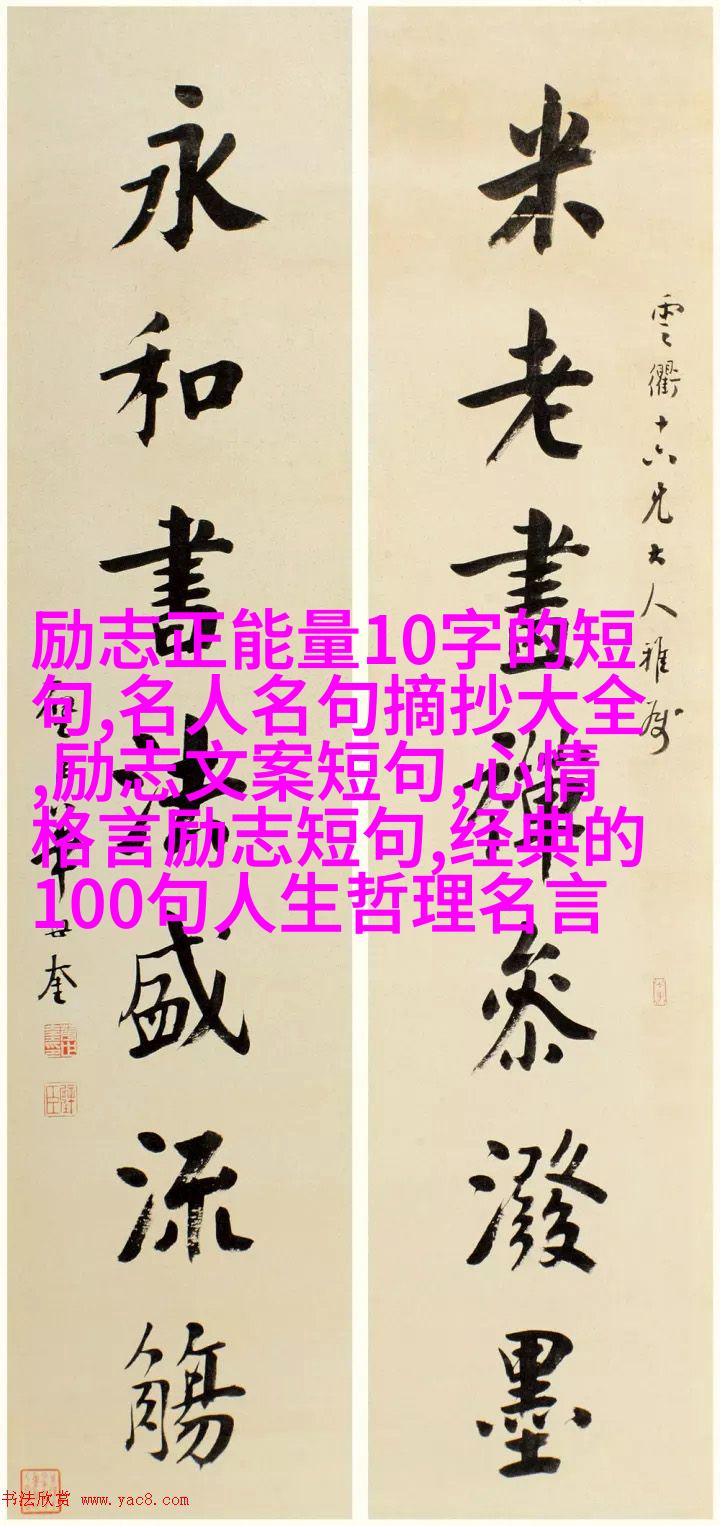 米老畫禪參潑墨
雲衢十六兄大人雅屬
永和書法盛流觴
華世奎
励志正能量10字的短
句,名人名句摘抄大全
,励志文案短句,心情
格言励志短句,经典的
100句人生哲理名言
书法欣赏 www.yac8.com